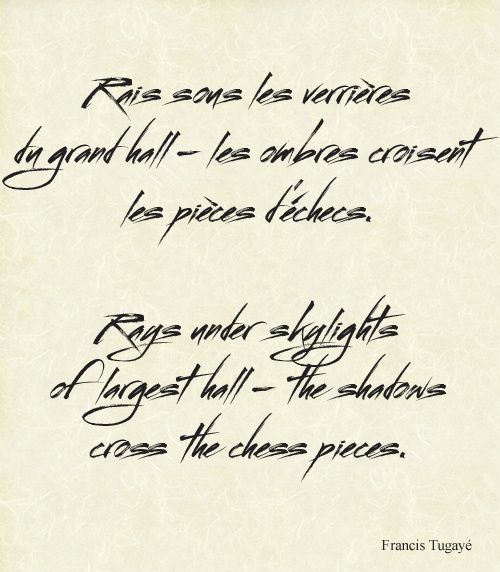 Rais sous les verrières
du grand hall – les ombres croisent
les pièces d'échecs.
Rays under skylights
of largest hall – the shadows
cross the chess pieces.
Francis Tugayé